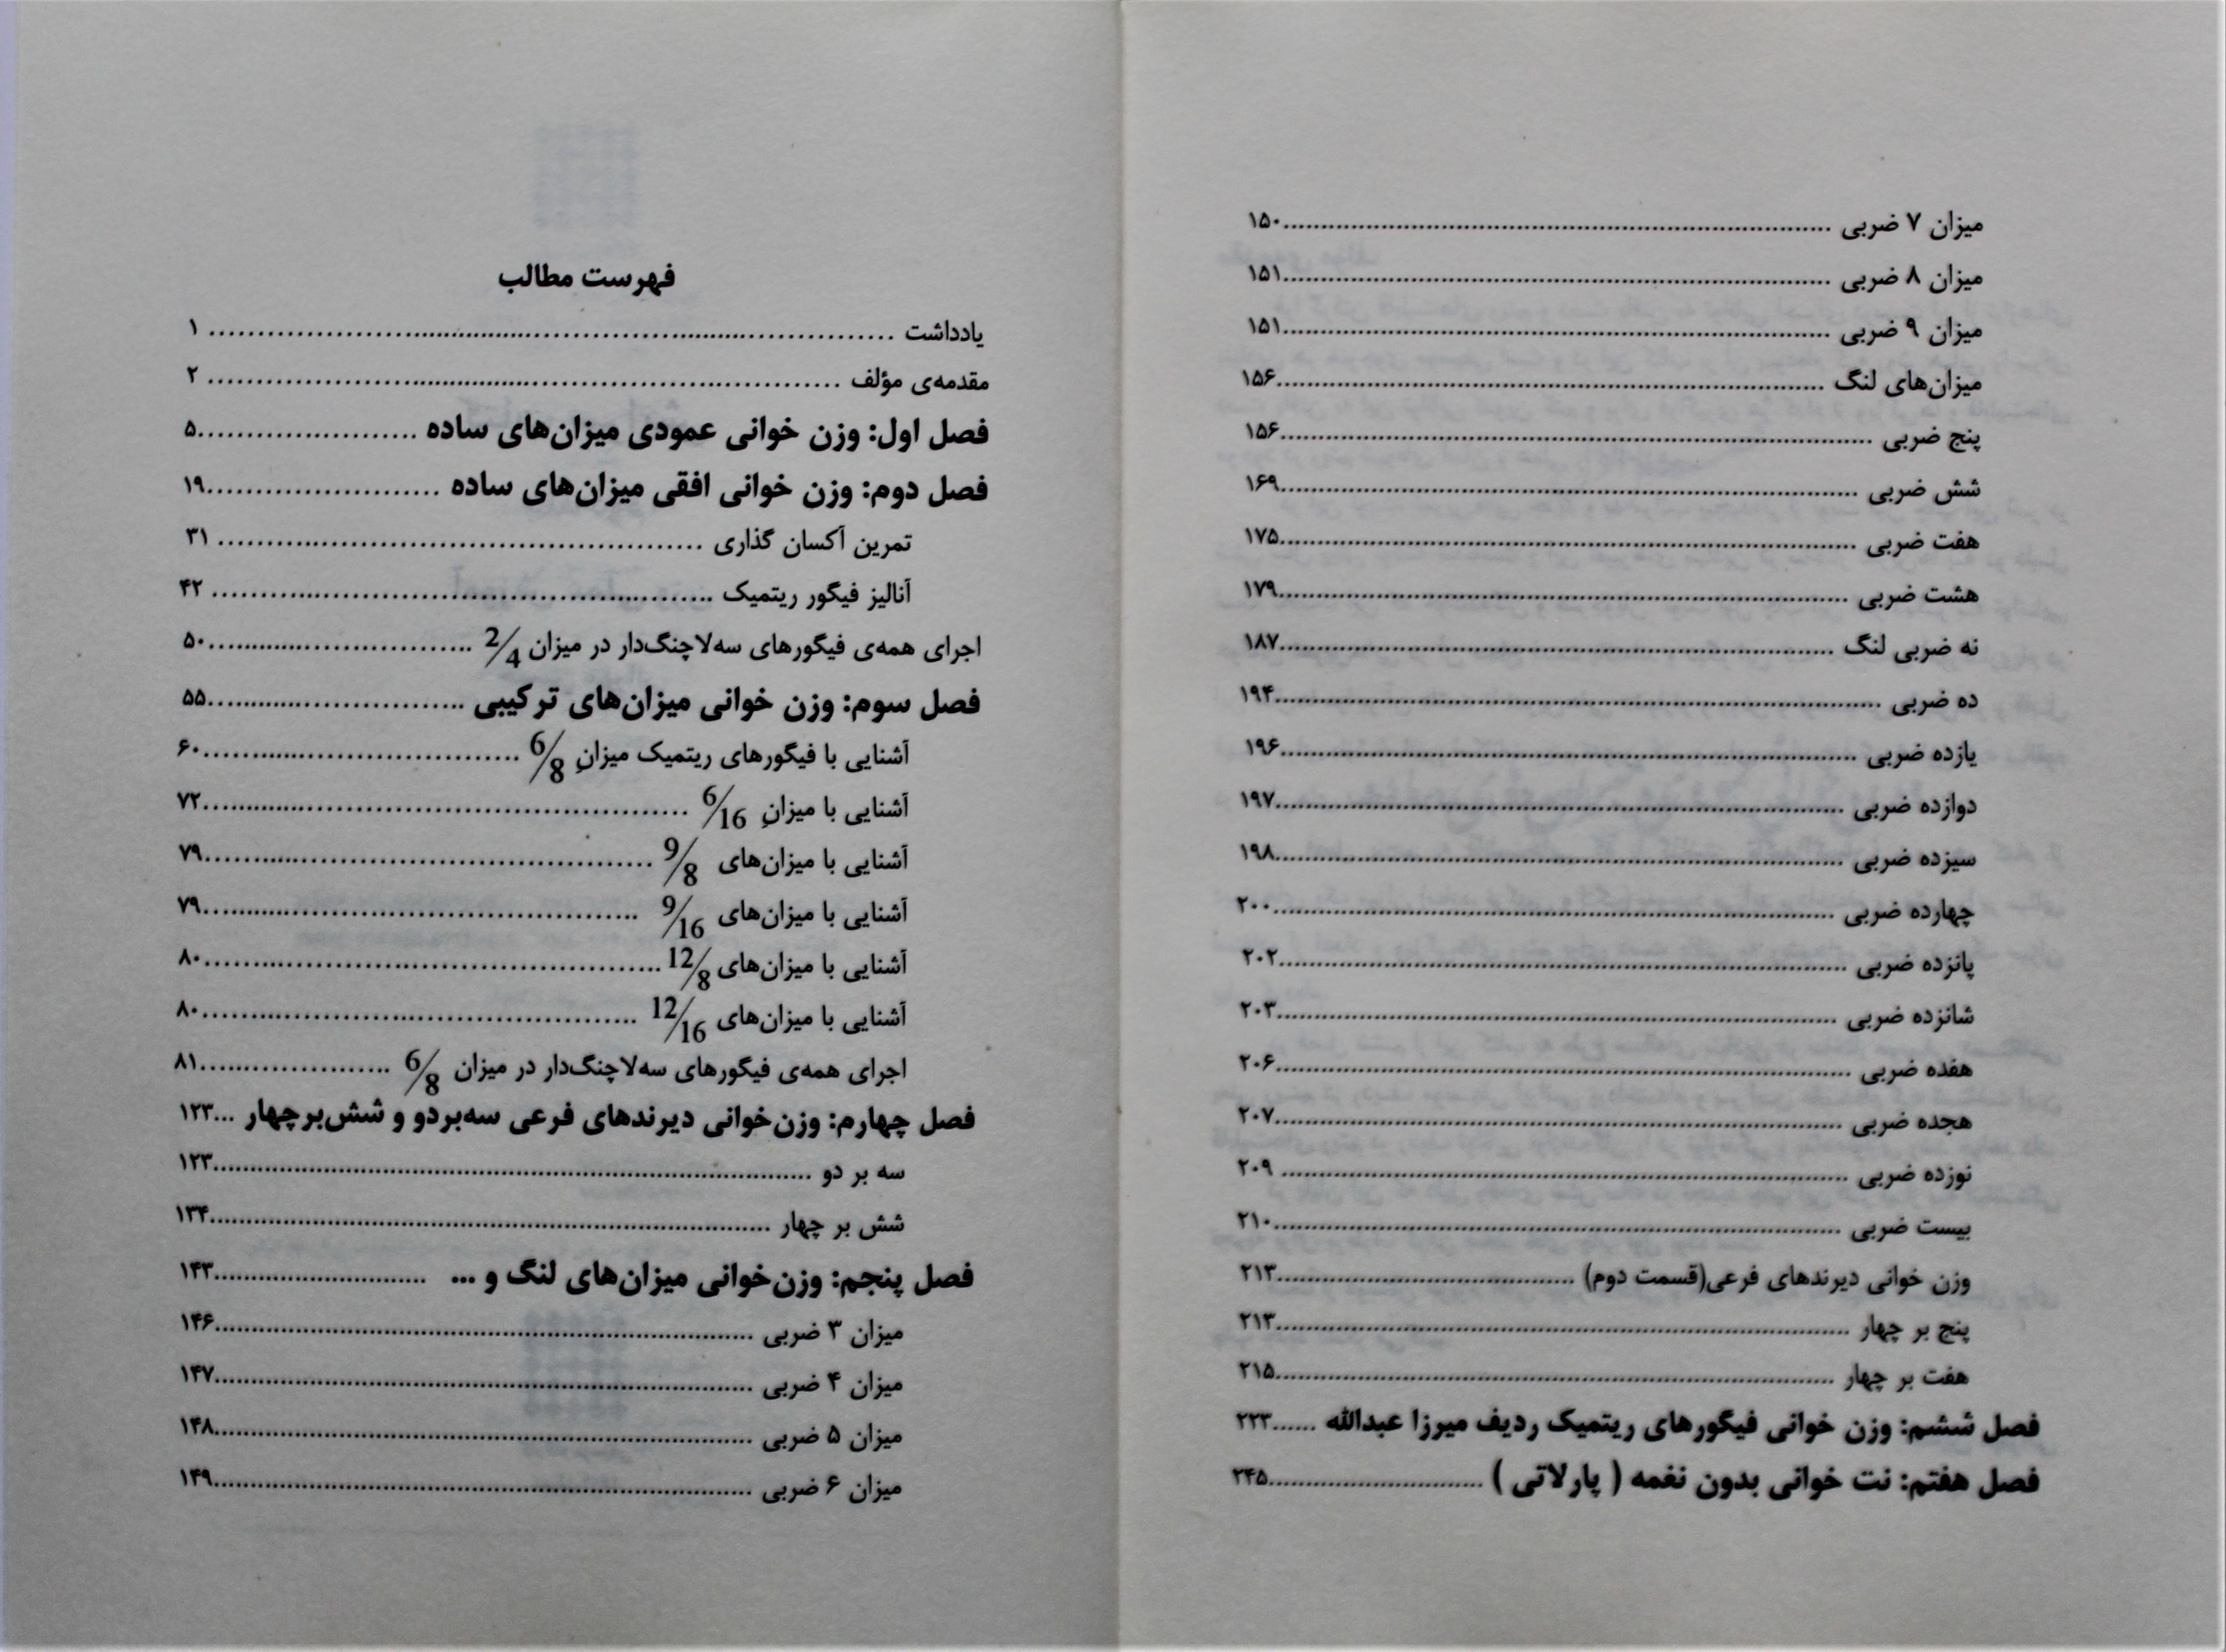 فهرست مطالب
یادداشت ........ ۱
مقدمه‌ی مؤلف ........ ۲
فصل اول: وزن خوانی عمودی میزان‌های ساده ........ ۵
فصل دوم: وزن خوانی افقی میزان‌های ساده ........ ۱۹
تمرین آکسان گذاری ........ ۳۱
آنالیز فیگور ریتمیک ........ ۴۲
اجرای همه‌ی فیگورهای سه‌لاچنگ‌دار در میزان 2/4 ........ ۵۰
فصل سوم: وزن خوانی میزان‌های ترکیبی ........ ۵۵
آشنایی با فیگورهای ریتمیک میزانِ 6/8 ........ ۶۰
آشنایی با میزانِ 6/16 ........ ۷۲
آشنایی با میزان‌های 9/8 ........ ۷۹
آشنایی با میزان‌های 9/16 ........ ۷۹
آشنایی با میزان‌های 12/8 ........ ۸۰
آشنایی با میزان‌های 12/16 ........ ۸۰
اجرای همه‌ی فیگورهای سه‌لاچنگ‌دار در میزان 6/8 ........ ۸۱
فصل چهارم: وزن‌خوانی دیرندهای فرعی سه‌بردو و شش‌برچهار ...۱۲۳
سه بر دو ........ ۱۲۳
شش بر چهار ........ ۱۳۴
فصل پنجم: وزن‌خوانی میزان‌های لنگ و ... ........ ۱۴۳
میزان ۳ ضربی ........ ۱۴۶
میزان ۴ ضربی ........ ۱۴۷
میزان ۵ ضربی ........ ۱۴۸
میزان ۶ ضربی ........ ۱۴۹
میزان ۷ ضربی ........ ۱۵۰
میزان ۸ ضربی ........ ۱۵۱
میزان ۹ ضربی ........ ۱۵۱
میزان‌های لنگ ........ ۱۵۶
پنج ضربی ........ ۱۵۶
شش ضربی ........ ۱۶۹
هفت ضربی ........ ۱۷۵
هشت ضربی ........ ۱۷۹
نه ضربی لنگ ........ ۱۸۷
ده ضربی ........ ۱۹۴
یازده ضربی ........ ۱۹۶
دوازده ضربی ........ ۱۹۷
سیزده ضربی ........ ۱۹۸
چهارده ضربی ........ ۲۰۰
پانزده ضربی ........ ۲۰۲
شانزده ضربی ........ ۲۰۳
هفده ضربی ........ ۲۰۶
هجده ضربی ........ ۲۰۷
نوزده ضربی ........ ۲۰۹
بیست ضربی ........ ۲۱۰
وزن خوانی دیرندهای فرعی(قسمت دوم) ........ ۲۱۳
پنج بر چهار ........ ۲۱۳
هفت بر چهار ........ ۲۱۵
فصل ششم: وزن خوانی فیگورهای ریتمیک ردیف میرزا عبدالله ......۲۲۳
فصل هفتم: نت خوانی بدون نغمه ( پارلاتی ) ........ ۲۴۵